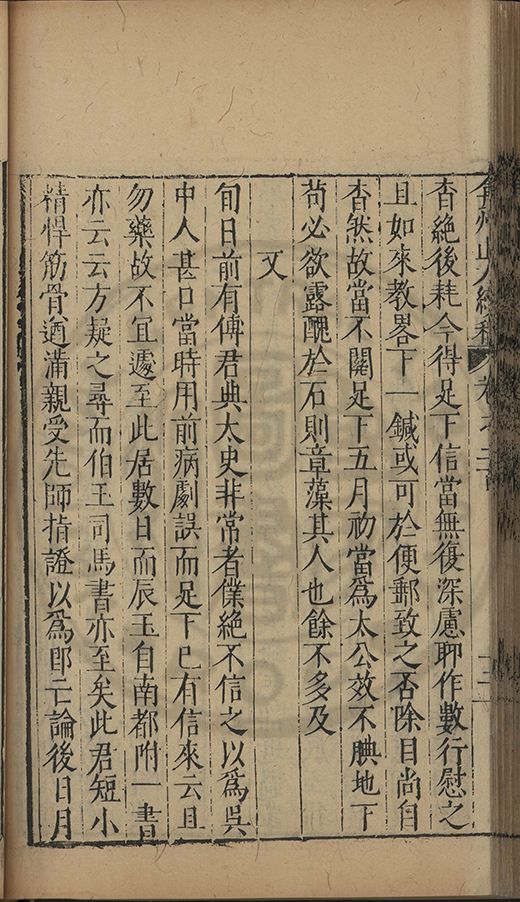 弇州山人續稿 卷之二百
杳絕後耗今得足下信當無復深慮聊作數行慰之
且如來教畧下一鍼或可於便郵致之否除目尚自
杳然故當不關足下五月初當爲太公效不腆地下
苟必欲露醜於石則章藻其人也餘不多及
又
旬日前有傅君典太史非常者僕絕不信之以爲吳
中人甚口當時用前病劇誤而足下已有信來云且
勿藥故不宜遽至此居數日而辰玉自南都附一書
亦云云方疑之尋而伯玉司馬書亦至矣此君短小
精悍筋骨遒滿親受先師指證以爲卽亡論後日月